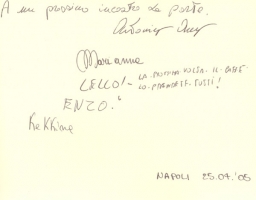 A un prossimo incontro La porta.
Antonio
Marianna
LELLO! - LA PROSSIMA VOLTA IL CAFFÈ
LO PRENDETE TUTTI!
ENZO.
NAPOLI 25.07.'05